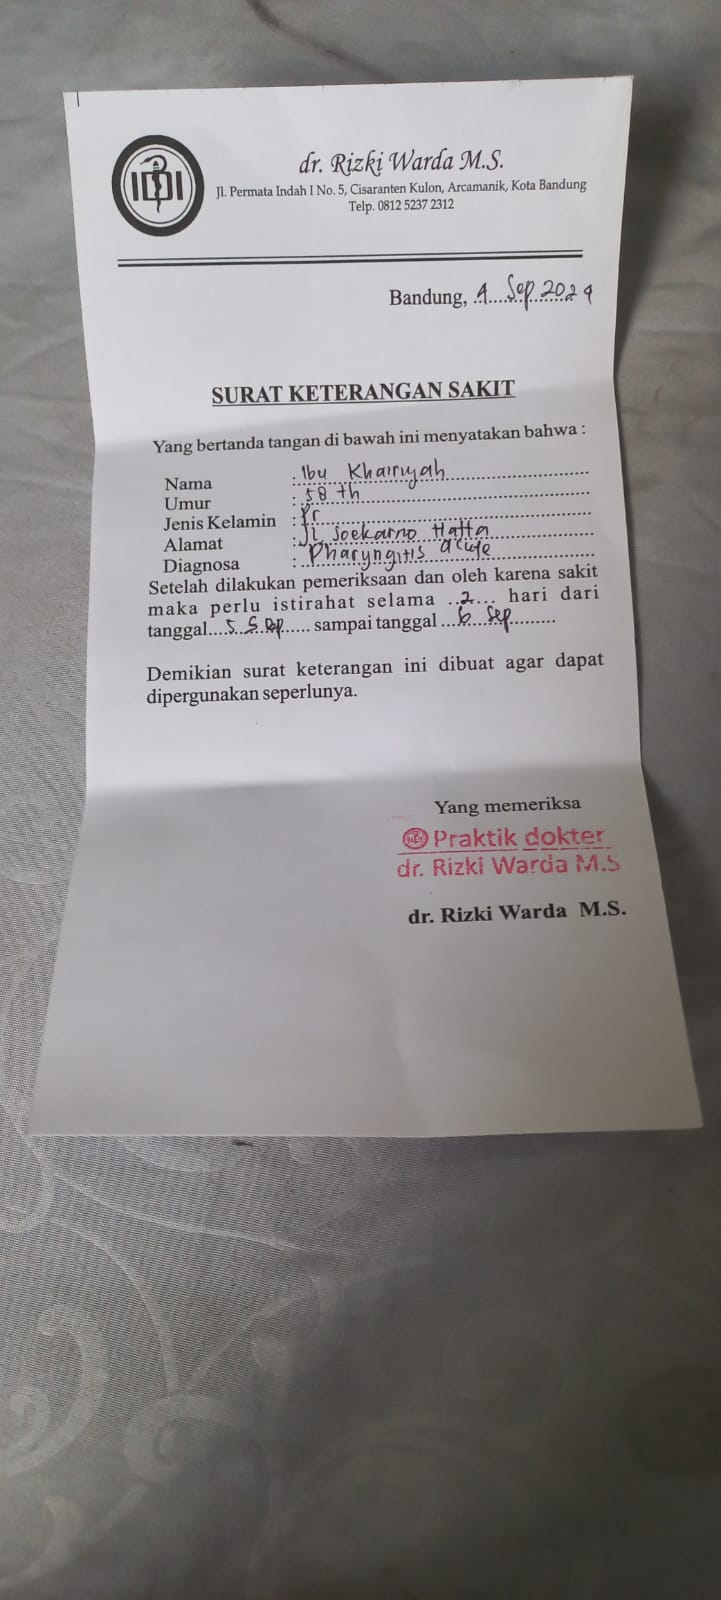 IDI
dr. Rizki Warda M.S.
Jl. Permata Indah I No. 5, Cisaranten Kulon, Arcamanik, Kota Bandung
Telp. 0812 5237 2312
Bandung, 4 Sep 2024
SURAT KETERANGAN SAKIT
Yang bertanda tangan di bawah ini menyatakan bahwa :
Nama : Ibu Khairiyah
Umur : 58 th
Jenis Kelamin : Pr
Alamat : Jl. Soekarno Hatta
Diagnosa : Pharyngitis acute
Setelah dilakukan pemeriksaan dan oleh karena sakit
maka perlu istirahat selama ..2... hari dari
tanggal....5 Sep...... sampai tanggal ...6 Sep..........
Demikian surat keterangan ini dibuat agar dapat
dipergunakan seperlunya.
Yang memeriksa
Praktik dokter
dr. Rizki Warda M.S
dr. Rizki Warda M.S.